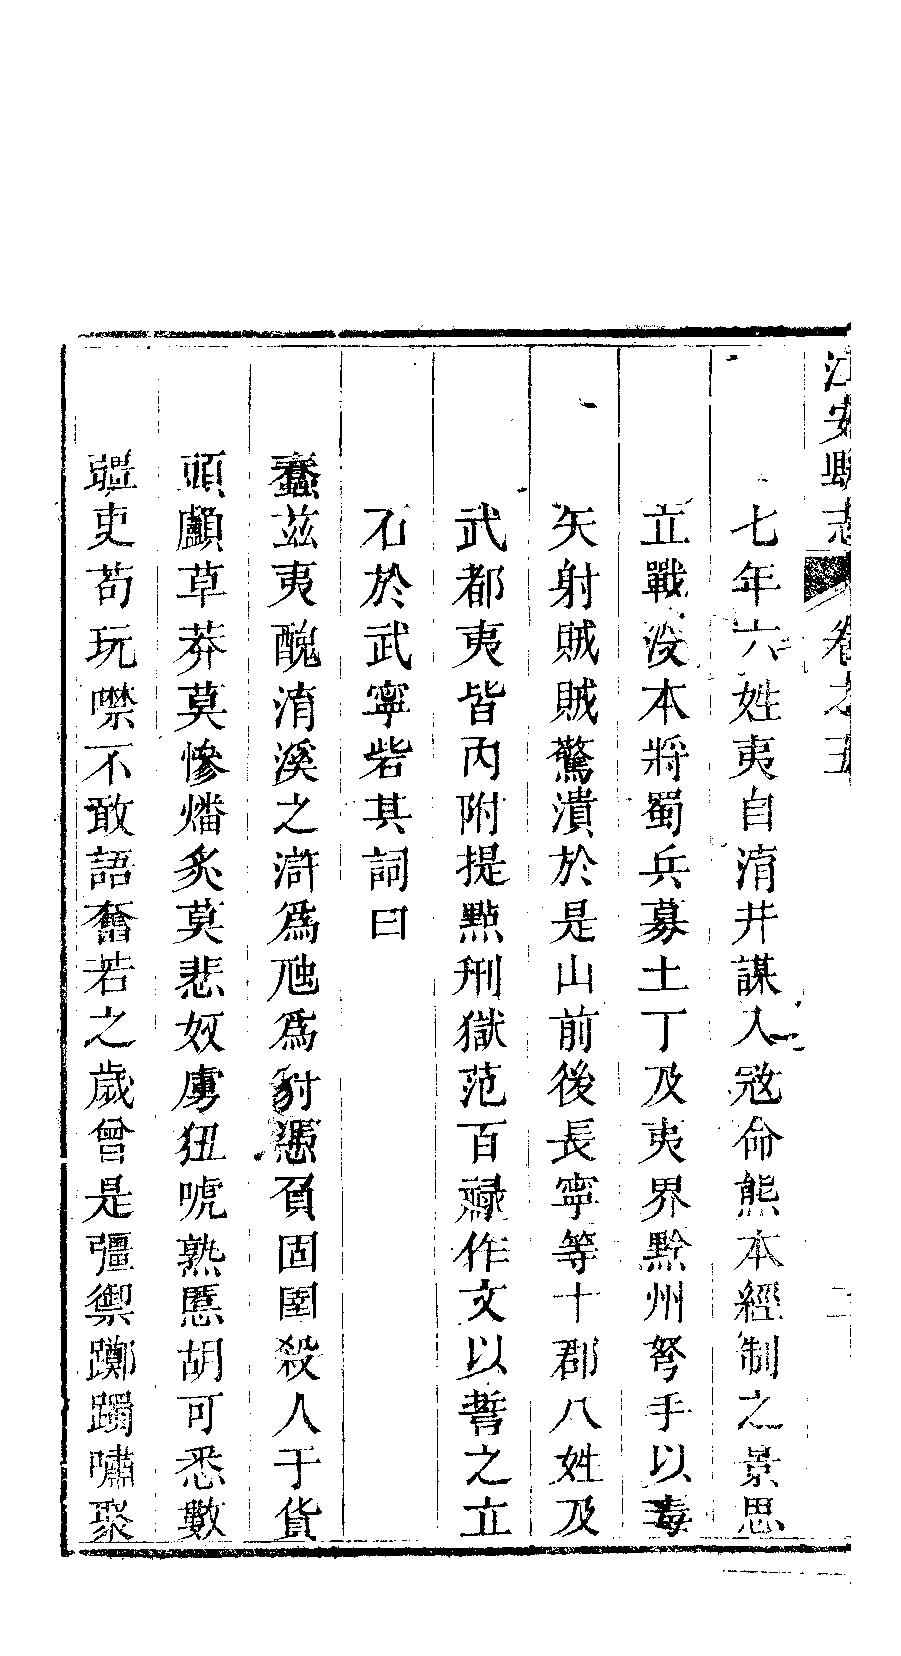 江安縣志 卷之五 二
七年六姓夷自淯井謀入寇命熊本經制之景思
立戰没本將蜀兵募土丁及夷界黔州弩手以毒
矢射賊賊驚潰於是山前後長寧等十郡八姓及
武都夷皆內附提點刑獄范百祿作文以誓之立
石於武寧砦其詞曰
蠢茲夷醜淯溪之滸爲虺爲豺憑負固圉殺人于貨
頭顱草莽莫慘燔炙莫悲奴虜狃唬熟慝胡可悉數
疆吏苟玩噤不敢語奮若之歲曾是彊禦躑躅嘯聚